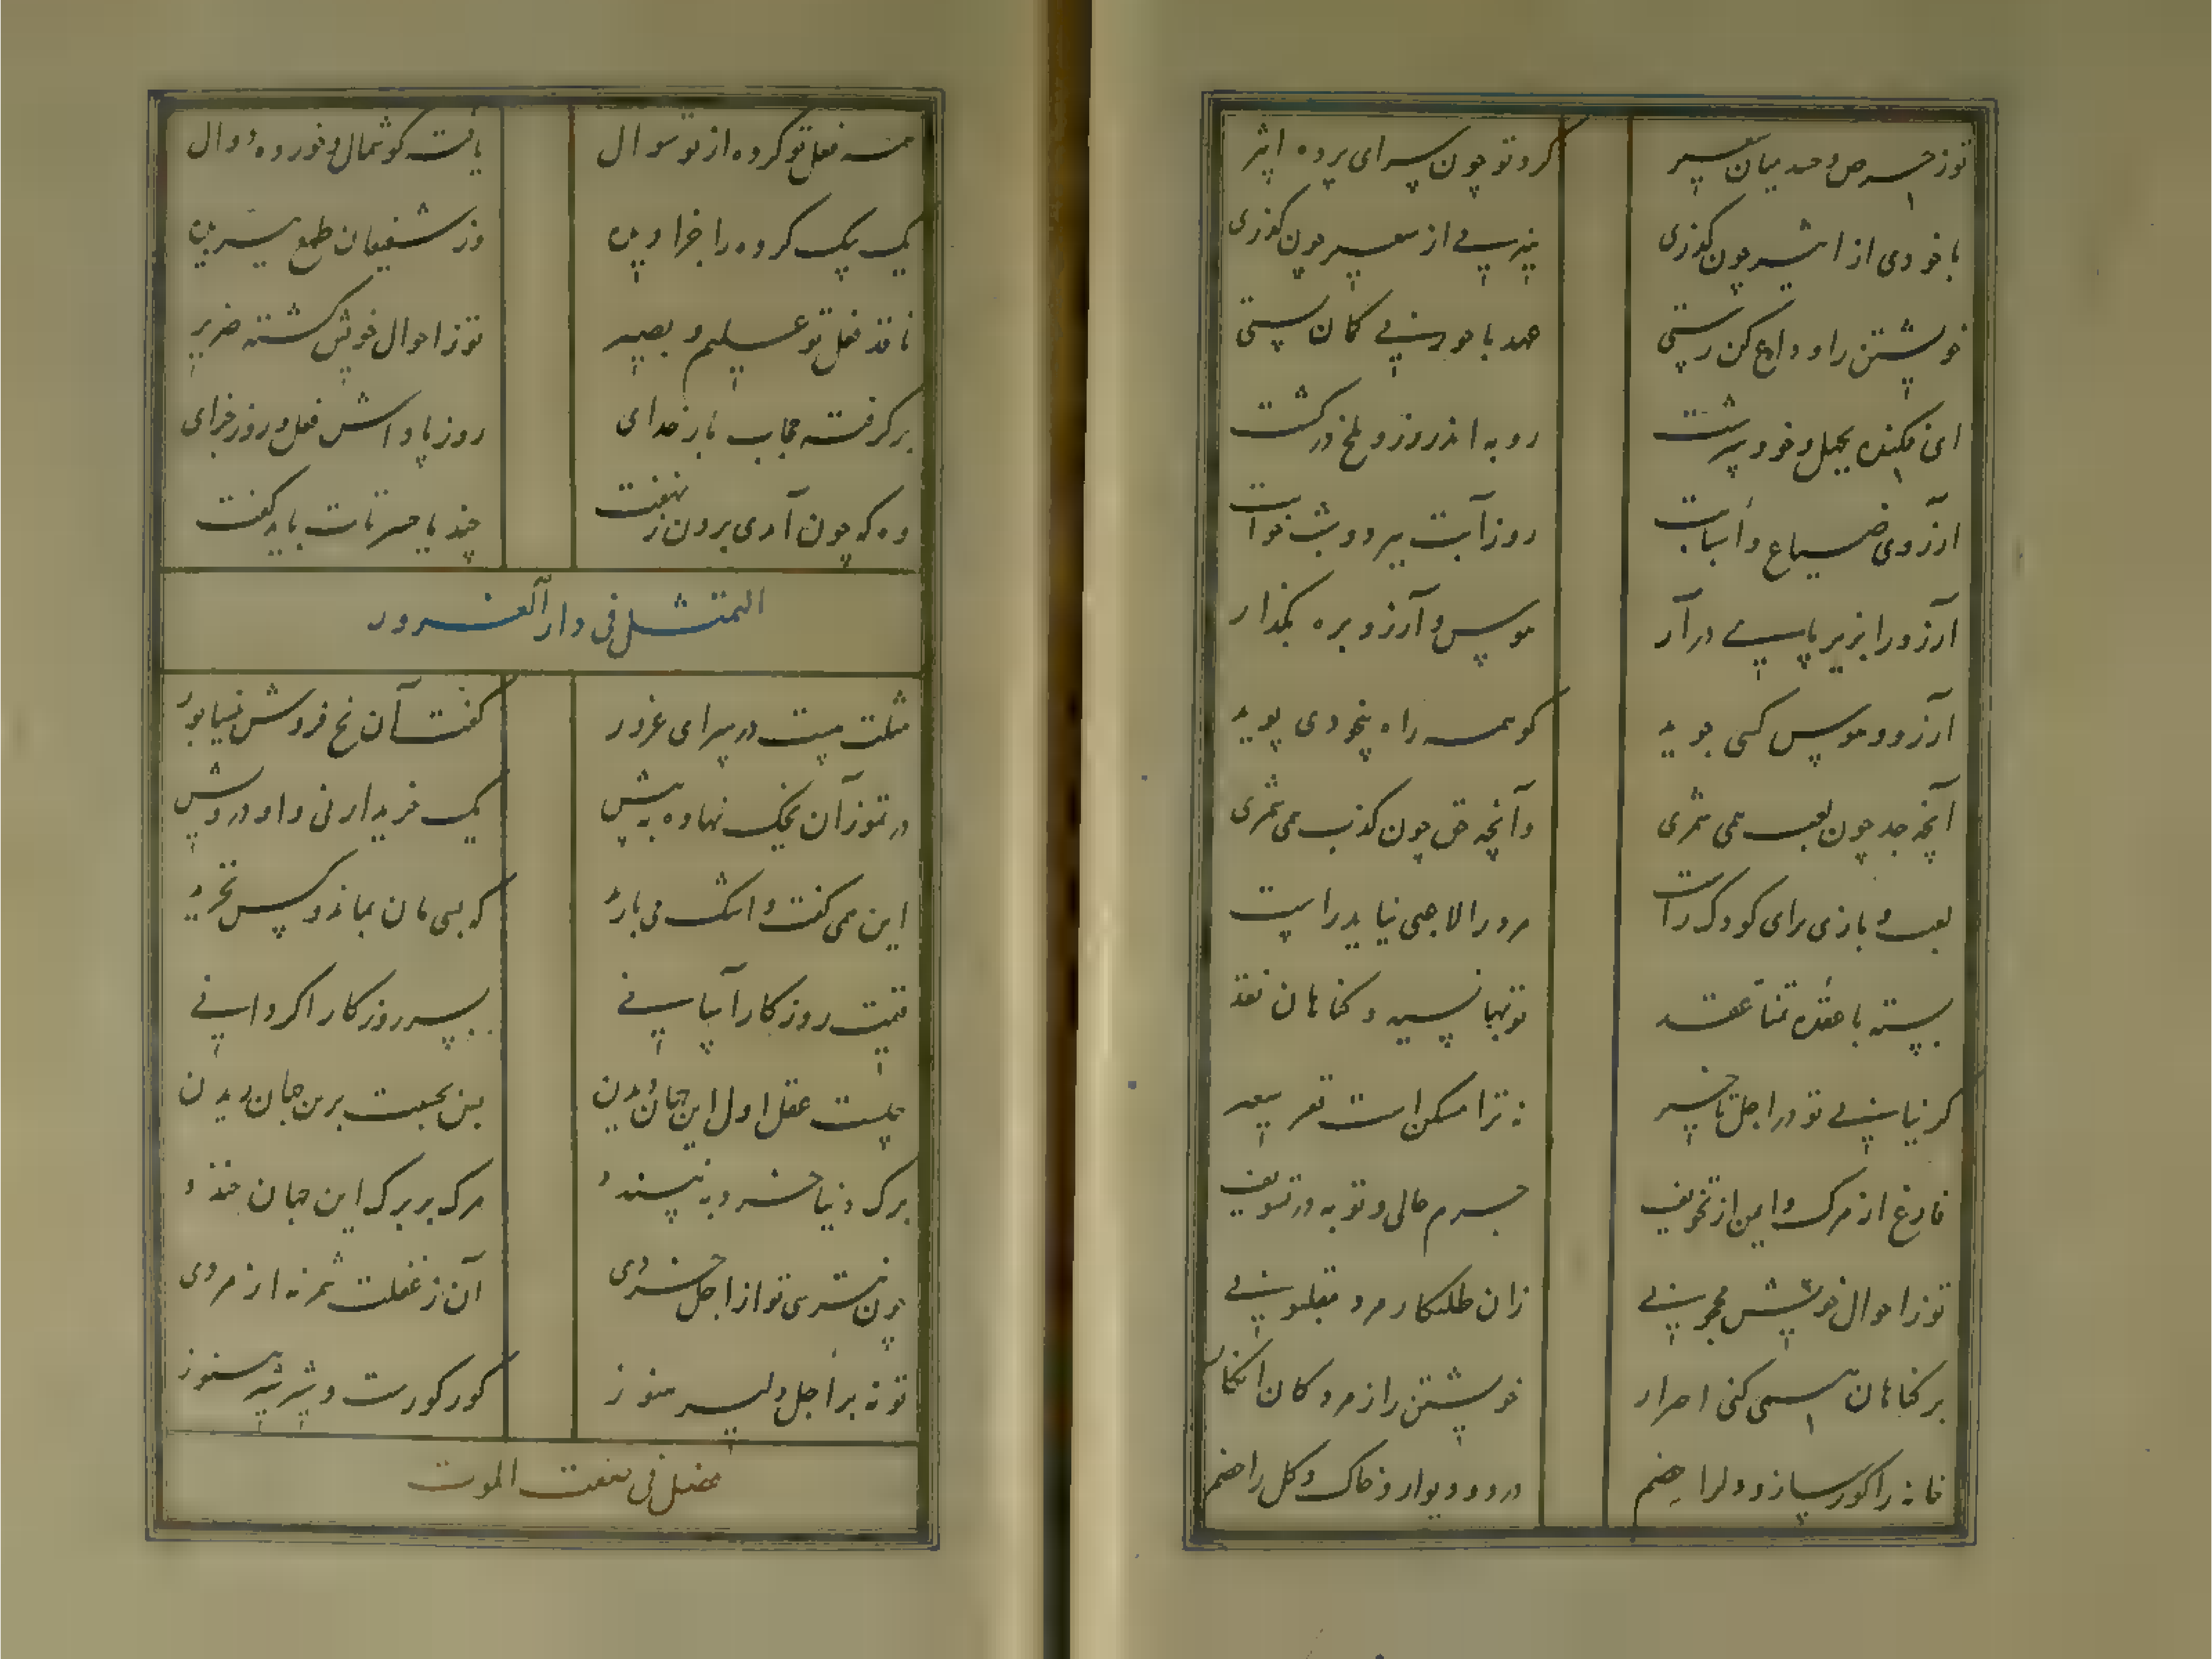 توز حرص و حسد میان سعیر
کرد تو چون سرای پرده اثیر
با خودی از اثیر چون گذری
نیز پی از سعیر چون گذری
خویشتن را وداع کن رستی
این کنده بخیل و خود پرست
آرزوی ضیاع و اسبابت
روز آبت ببرد و شب خوابت
آرزو را بزیر پای درآر
هوس و آرزو بره بگذار
آرزو و هوس کسی جوید
کو همه راه بیخودی پوید
آنچه جد چون لعب همی شمری
وآنچه حق چون کذب همی شمری
لعب و بازی برای کودک راست
مرد را لاجی نیاید راست
بسته با عقده تمنا عقد
توبها نسیه و گناهان نقد
کر نیابی تو در اجل تاخیر
نه ترا مسکن است قعر سعیر
فارغ از مرک و ایمن از تخویف
جرم حالی و توبه در تسویف
تو ز احوال خویش محجوبی
زان طلبکار مرد مقلوبی
بر گناهان همی کنی اصرار
خویشتن را ز مردکان انگار
خانه را گور ساز و دل را خصم
در و دیوار و خاک و گل را خصم
همه فعل تو کرده از تو سوال
یافته کوشمال و خورده دوال
یک بیک کرده را جزا دیده
وز شفیعان طمع ببریده
ناقد فعل تو علیم و بصیر
تو ز احوال خویش گشته ضریر
برکرفته حجاب بار خدای
روز پاداش فعل و روز جزای
وه که چون آمدی برون ز نهفت
چند یا حسرتات باید گفت
التمثل فی دار الغرور
مثلت هست در سرای غرور
گفت آن یخ فروش نیشابور
در تموز آن یخک نهاده به پیش
یک خریدار نی و او درویش
این همی گفت و اشک می بارید
که بسی مان نماند و کس نخرید
قیمت روزگار آسانی
بسر روزگار اگر دانی
چیست عقل اول این جهان دیدن
پس بحسبت برین جهان ریدن
برک دنیا خرد نپسندد
مرک بر برک این جهان خندد
چون نترسی تو از اجل خردی
آن ز غفلت شمر نه از مردی
تو نه بر اجل دلیر هنوز
کور کورست و شیر شیر هنوز
فصل فی صفت الموت